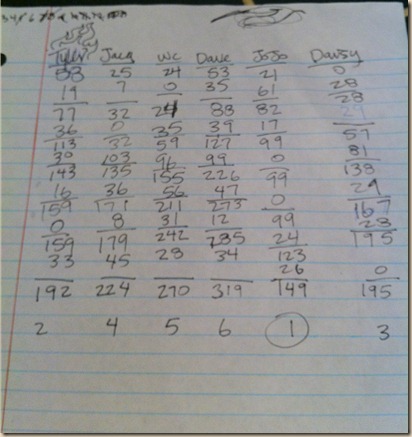 Jacq WC Dave JoJo Daisy
58 25 24 53 21 0
19 7 0 35 61 28
77 32 24 88 82 28
36 0 35 39 17 29
113 32 59 127 99 57
30 103 96 99 0 81
143 135 155 226 99 138
16 36 56 47 0 29
159 171 211 273 99 167
0 8 31 12 24 28
159 179 242 285 123 195
33 45 28 34 26 0
192 224 270 319 149 195
2 4 5 6 1 3